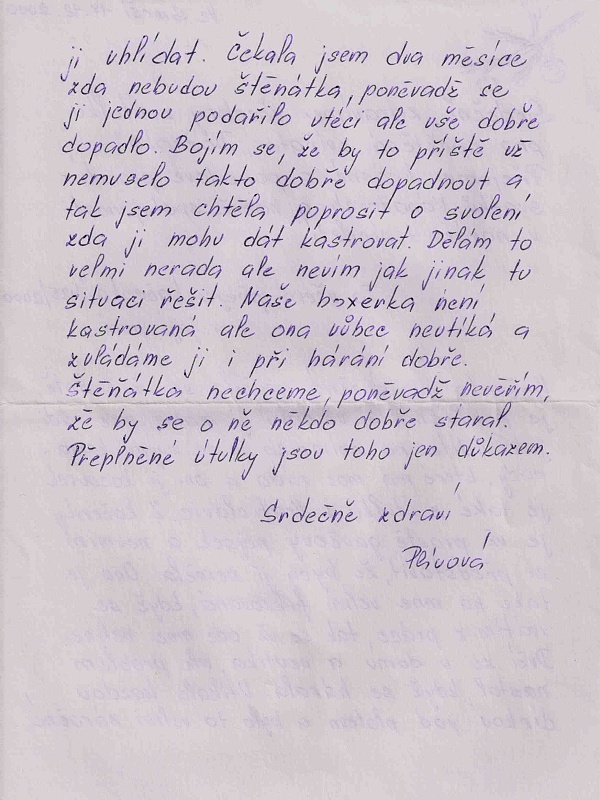 ji uhlídat. Čekala jsem dva měsíce
zda nebudou štěnátka, poněvadž se
ji jednou podařilo utéci ale vše dobře
dopadlo. Bojím se, že by to příště už
nemuselo takto dobře dopadnout a
tak jsem chtěla poprosit o svolení
zda ji mohu dát kastrovat. Dělám to
velmi nerada ale nevím jak jinak tu
situaci řešit. Naše boxerka není
kastrovaná ale ona vůbec neutíká a
zvládáme ji i při hárání dobře.
Štěňátka nechceme, poněvadž nevěřím,
že by se o ně někdo dobře staral.
Přeplněné útulky jsou toho jen důkazem.
Srdečně zdraví